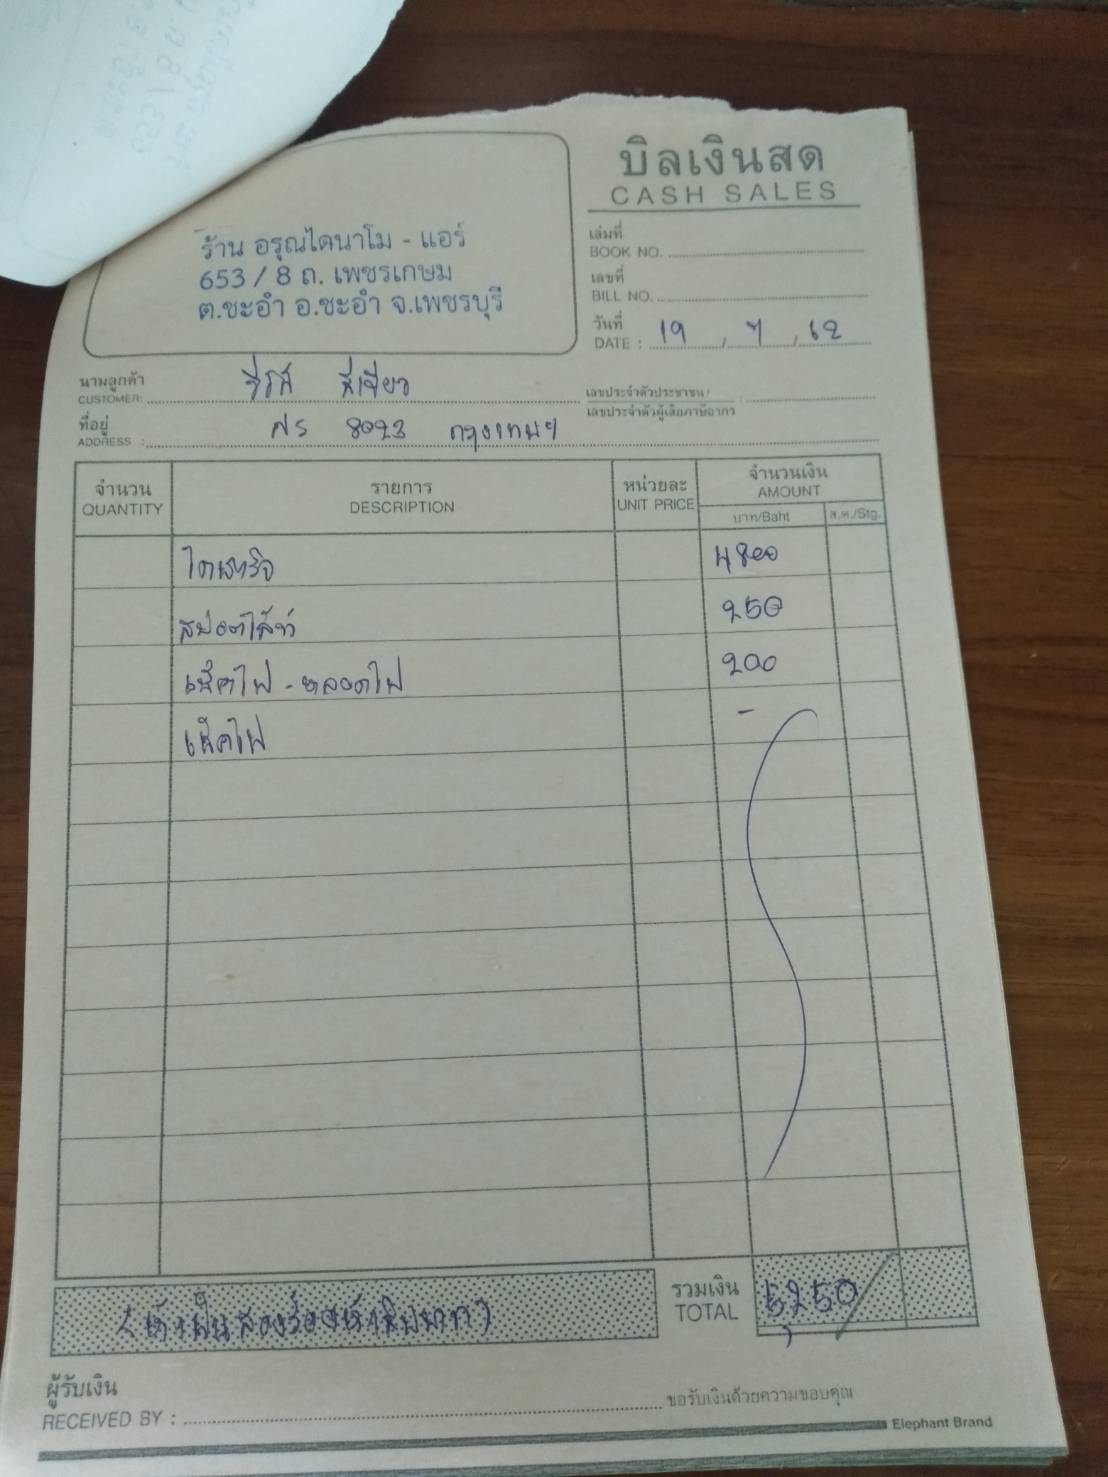 บิลเงินสด
CASH SALES
ร้าน อรุณไดนาโม - แอร์
653 / 8 ถ. เพชรเกษม
ต.ชะอำ อ.ชะอำ จ.เพชรบุรี
เล่มที่
BOOK NO.
เลขที่
BILL NO.
วันที่
DATE : 19 / 7 / 62
นามลูกค้า
CUSTOMER: สีเขียว
เลขประจำตัวประชาชน/
เลขประจำตัวผู้เสียภาษีอากร
ที่อยู่
ADDRESS : 8023 กรุงเทพฯ
จำนวน
QUANTITY
รายการ
DESCRIPTION
หน่วยละ
UNIT PRICE
จำนวนเงิน
AMOUNT
บาท/Baht
ส.ต./Stg.
ไดชาร์จ 4800
สปอตไล้ท์ 250
เช็คไฟ - หลอดไฟ 200
เช็คไฟ -
(ห้าพันสองร้อยห้าสิบบาท)
รวมเงิน
TOTAL 5,250
ผู้รับเงิน
RECEIVED BY :
ขอรับเงินด้วยความขอบคุณ
Elephant Brand